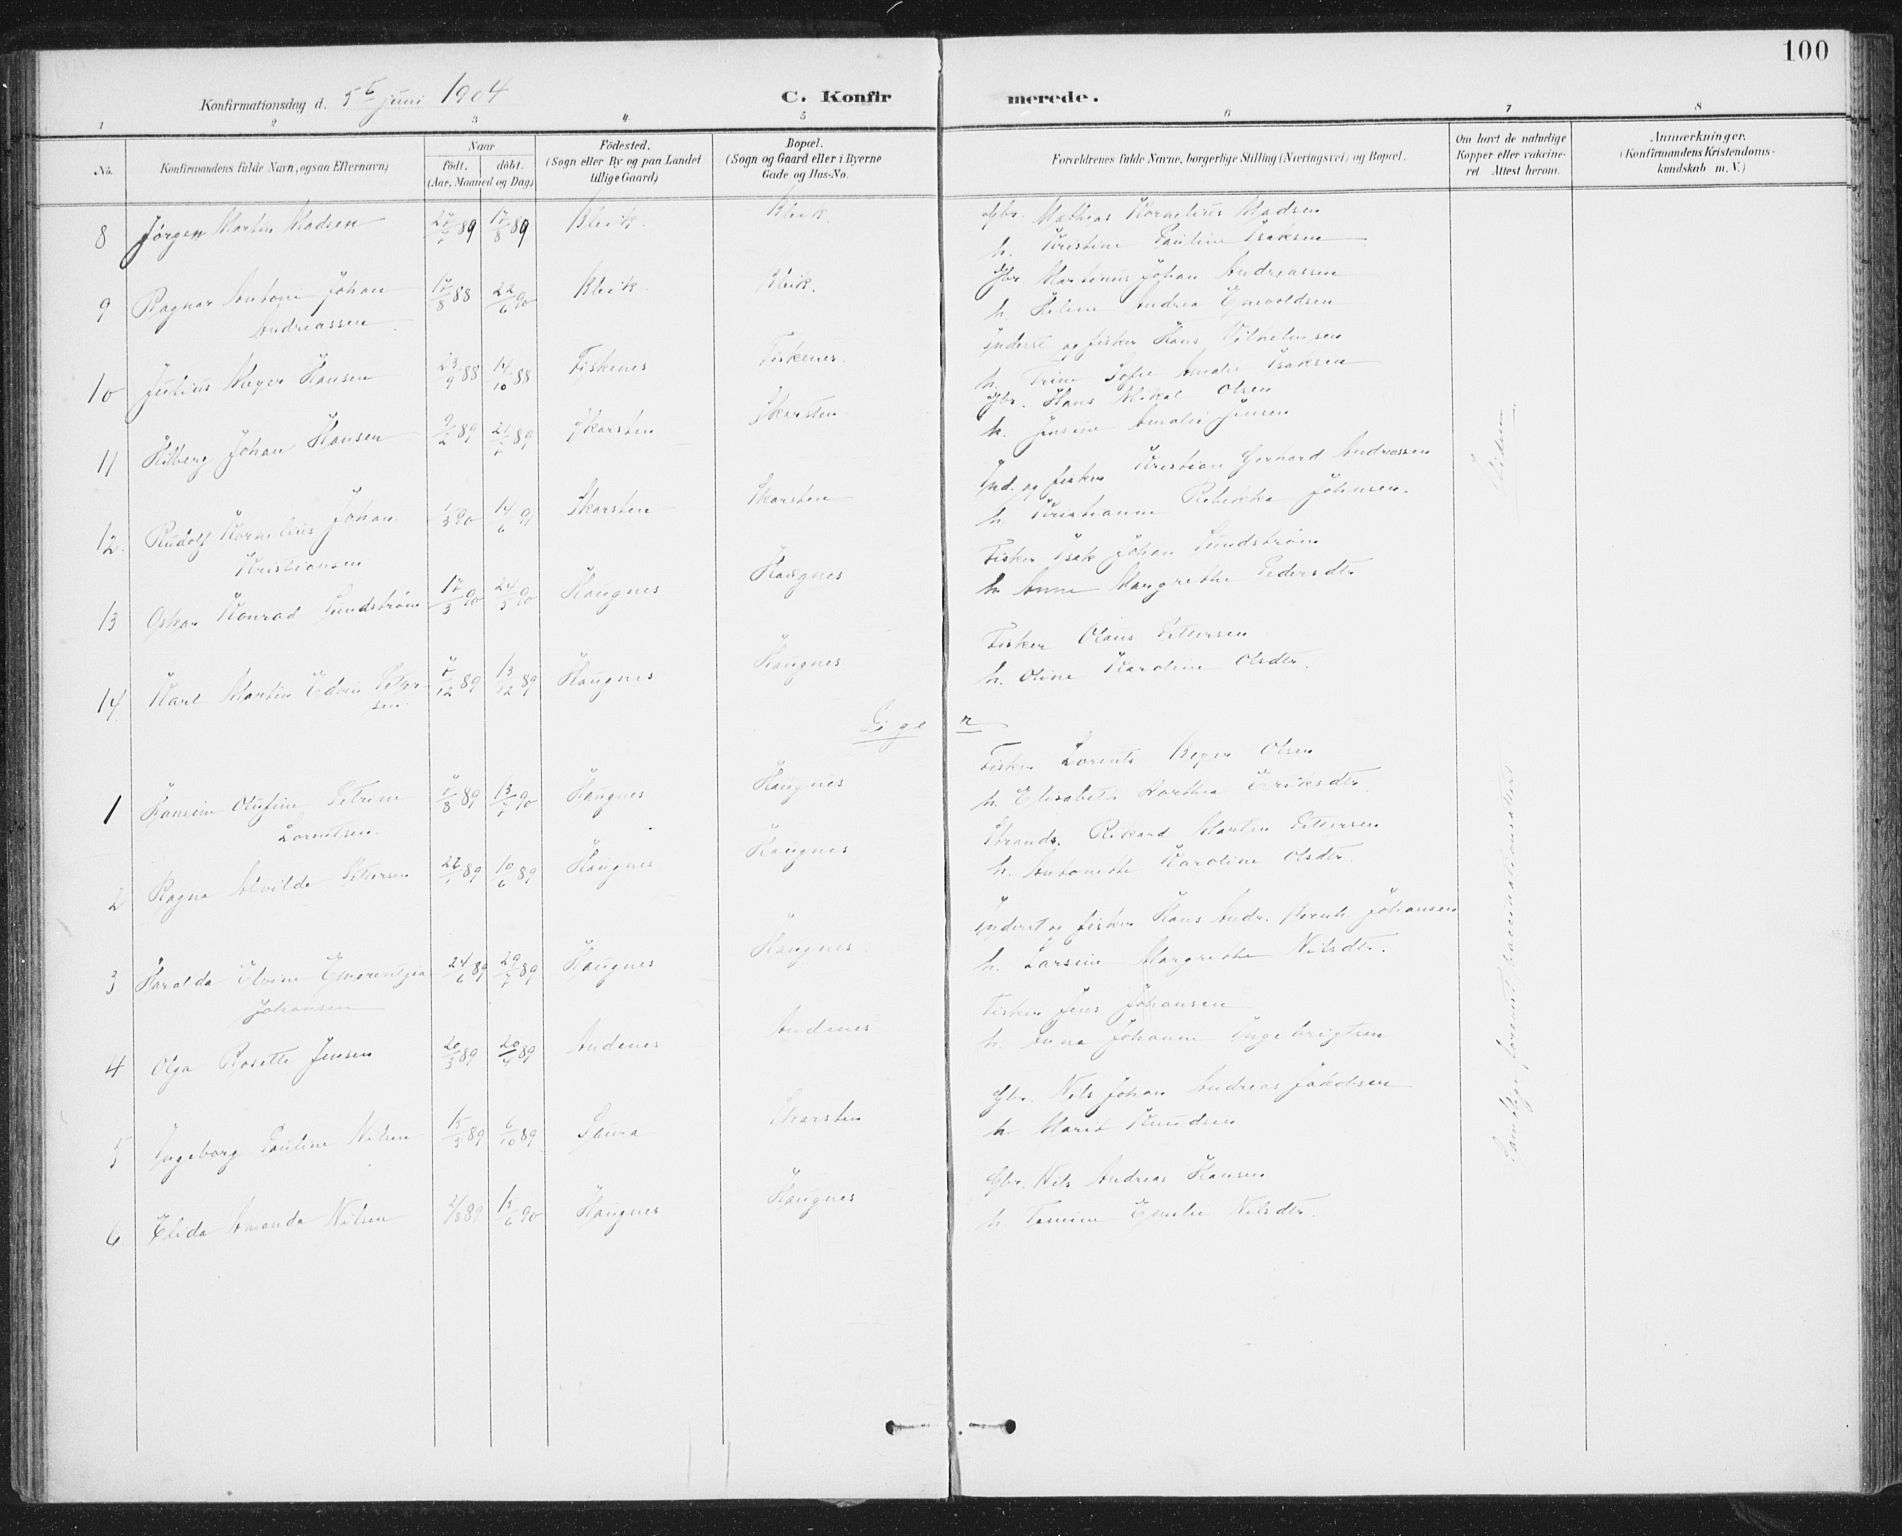 100
Konfirmationsdag d. 5te juni 1904 C. Konfirmerede.
1 2 3 4 5 6 7 8
No. Konfirmandens fulde Navn, ogsaa Efternavn, Naar født. døbt. (Aar, Maaned og Dag) Fødested. (Sogn eller By og paa Landet tillige Gaard) Bopæl. (Sogn og Gaard eller i Byerne Gade og Hus-No. Forældrenes fulde Navne, borgerlige Stilling (Næringsvei) og Bopæl. Om havt de naturlige Kopper eller vakcineret. Attest herom. Anmærkninger. (Konfirmandens Kristendomskundskab m. V.)
8 Jørgen Martin Madsen 89 17/8 89 Bleik. Bleik. Gbr. Mathias Kornelius Madsen
h. Kristine Pauline Isaksen
9 Ragnar Antoni Johan 88 22/6 90 Bleik. Bleik. Gbr. Martinus Johan Andreassen
Andreassen h. Helene Andrea Enevoldsen
10 Julius Meyer Hansen 23/9 88 14/10 88 Fiskenes Fiskenes. Inderst og fisker Hans Vilhelmsen
h. Trine Sofie Amalie Isaksen
11 Hilberg Johan Hansen 9/2 89 89 Skarsten Skarsten Gbr. Hans Mikal Olsen
h. Jensine Amalie Jensen
12. Rudolf Kornelius Johan 1/3 90 14/6 Skarsten Skarsten Ind. og fisker Kristian Gerhard Andreassen
Kristiansen h. Kristianne Rebekka Johnsen.
13 Oskar Konrad Sundstrøm 90 24/5 90 Haugnes Haugnes Fisker Isak Johan Sundstrøm
h. Anne Margrethe Pedersdtr
14. Karl Martin Edvin Petter- 12 89 13/12 89 Haugnes Haugnes Fisker Olaus Pettersen
sen. h. Oline Karoline Olsdtr.
Piger
1 Hansine Olufine Petrine 8 89 13/7 90 Haugnes Haugnes Fisker Lorents Beyer Olsen
Lorentsen. h. Elisabeth Dorthea Eriksdtr.
2 Ragna Alvilde Pettersen 89 10/6 89 Haugnes Haugnes Strands. Rikard Martin Pettersen
h. Antonette Karoline Olsdtr.
3 Haralda Elvine Emerentzia 24/6 89 29/7 89 Haugnes Haugnes Inderst og fisker Hans Andr. Bernh. Johansen
Johansen h. Larsine Margrethe Nilsdtr.
4 Olga Rosette Jensen 20/3 89 20/4 89 Andenes Andenes Fisker Jens Johansen
h. Anna Johanne Ingebrigtsen
5 Ingeborg Pauline Nilsen 89 6/10 89 Staura Skarsten Gbr. Nils Johan Andreas Jakobsen
h. Marit Knudsen
6. Elida Amanda Nilsen 89 90 Haugnes Haugnes Gbr. Nils Andreas Hansen
h. Tomine Emelie Nilsdtr.
Samtlige forevist vaccinationsattest